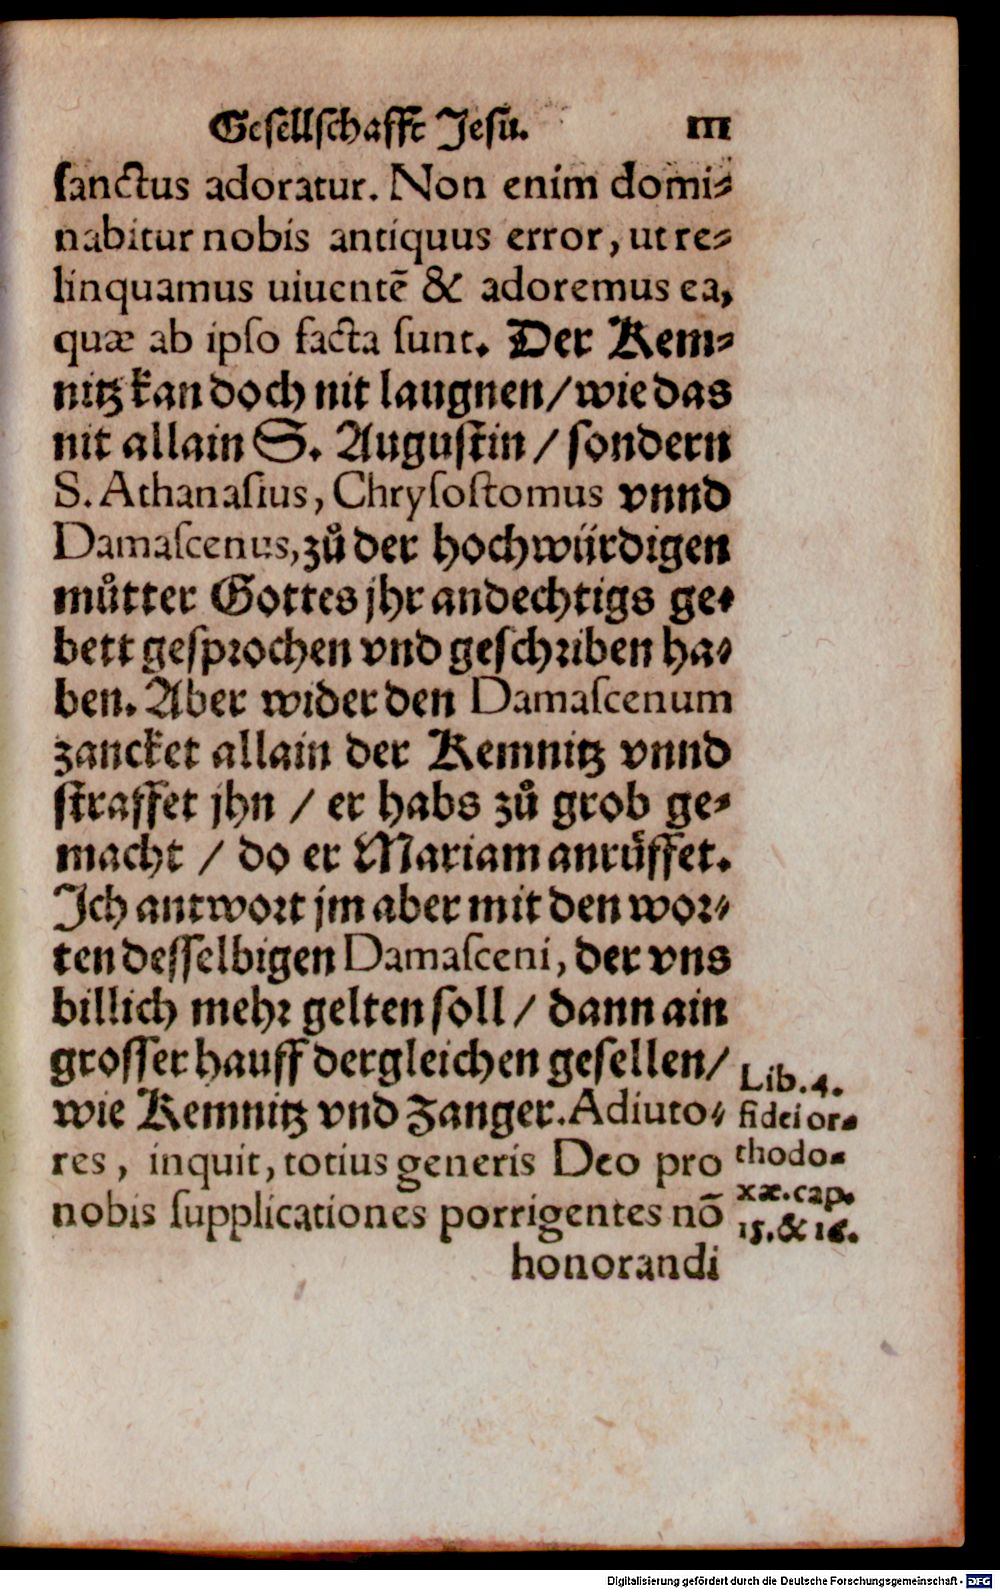 Geſellſchafft Jeſu. 111
ſanctus adoratur. Non enim domi⸗
nabitur nobis antiquus error, ut re⸗
linquamus uiuentē & adoremus ea,
quæ ab ipſo facta ſunt. Der Kem⸗
nitz kan doch nit laugnen/wie das
nit allain S. Auguſtin / ſondern
S. Athanaſius, Chryſoſtomus vnnd
Damaſcenus, zů der hochwürdigen
můtter Gottes jhr andechtigs ge⸗
bett geſprochen vnd geſchriben ha⸗
ben. Aber wider den Damaſcenum
zancket allain der Kemnitz vnnd
ſtraffet jhn / er habs zů grob ge⸗
macht / do er Mariam anrůffet.
Ich antwort jm aber mit den wor⸗
ten deſſelbigen Damaſceni, der vns
billich mehr gelten ſoll / dann ain
groſſer hauff dergleichen geſellen/
wie Kemnitz vnd Zanger. Adiuto⸗
res, inquit, totius generis Deo pro
nobis ſupplicationes porrigentes nō
honorandi
Lib. 4.
fidei or⸗
thodo⸗
xæ. cap.
15. & 16.
Digitalisierung gefördert durch die Deutsche Forschungsgemeinschaft - DFG